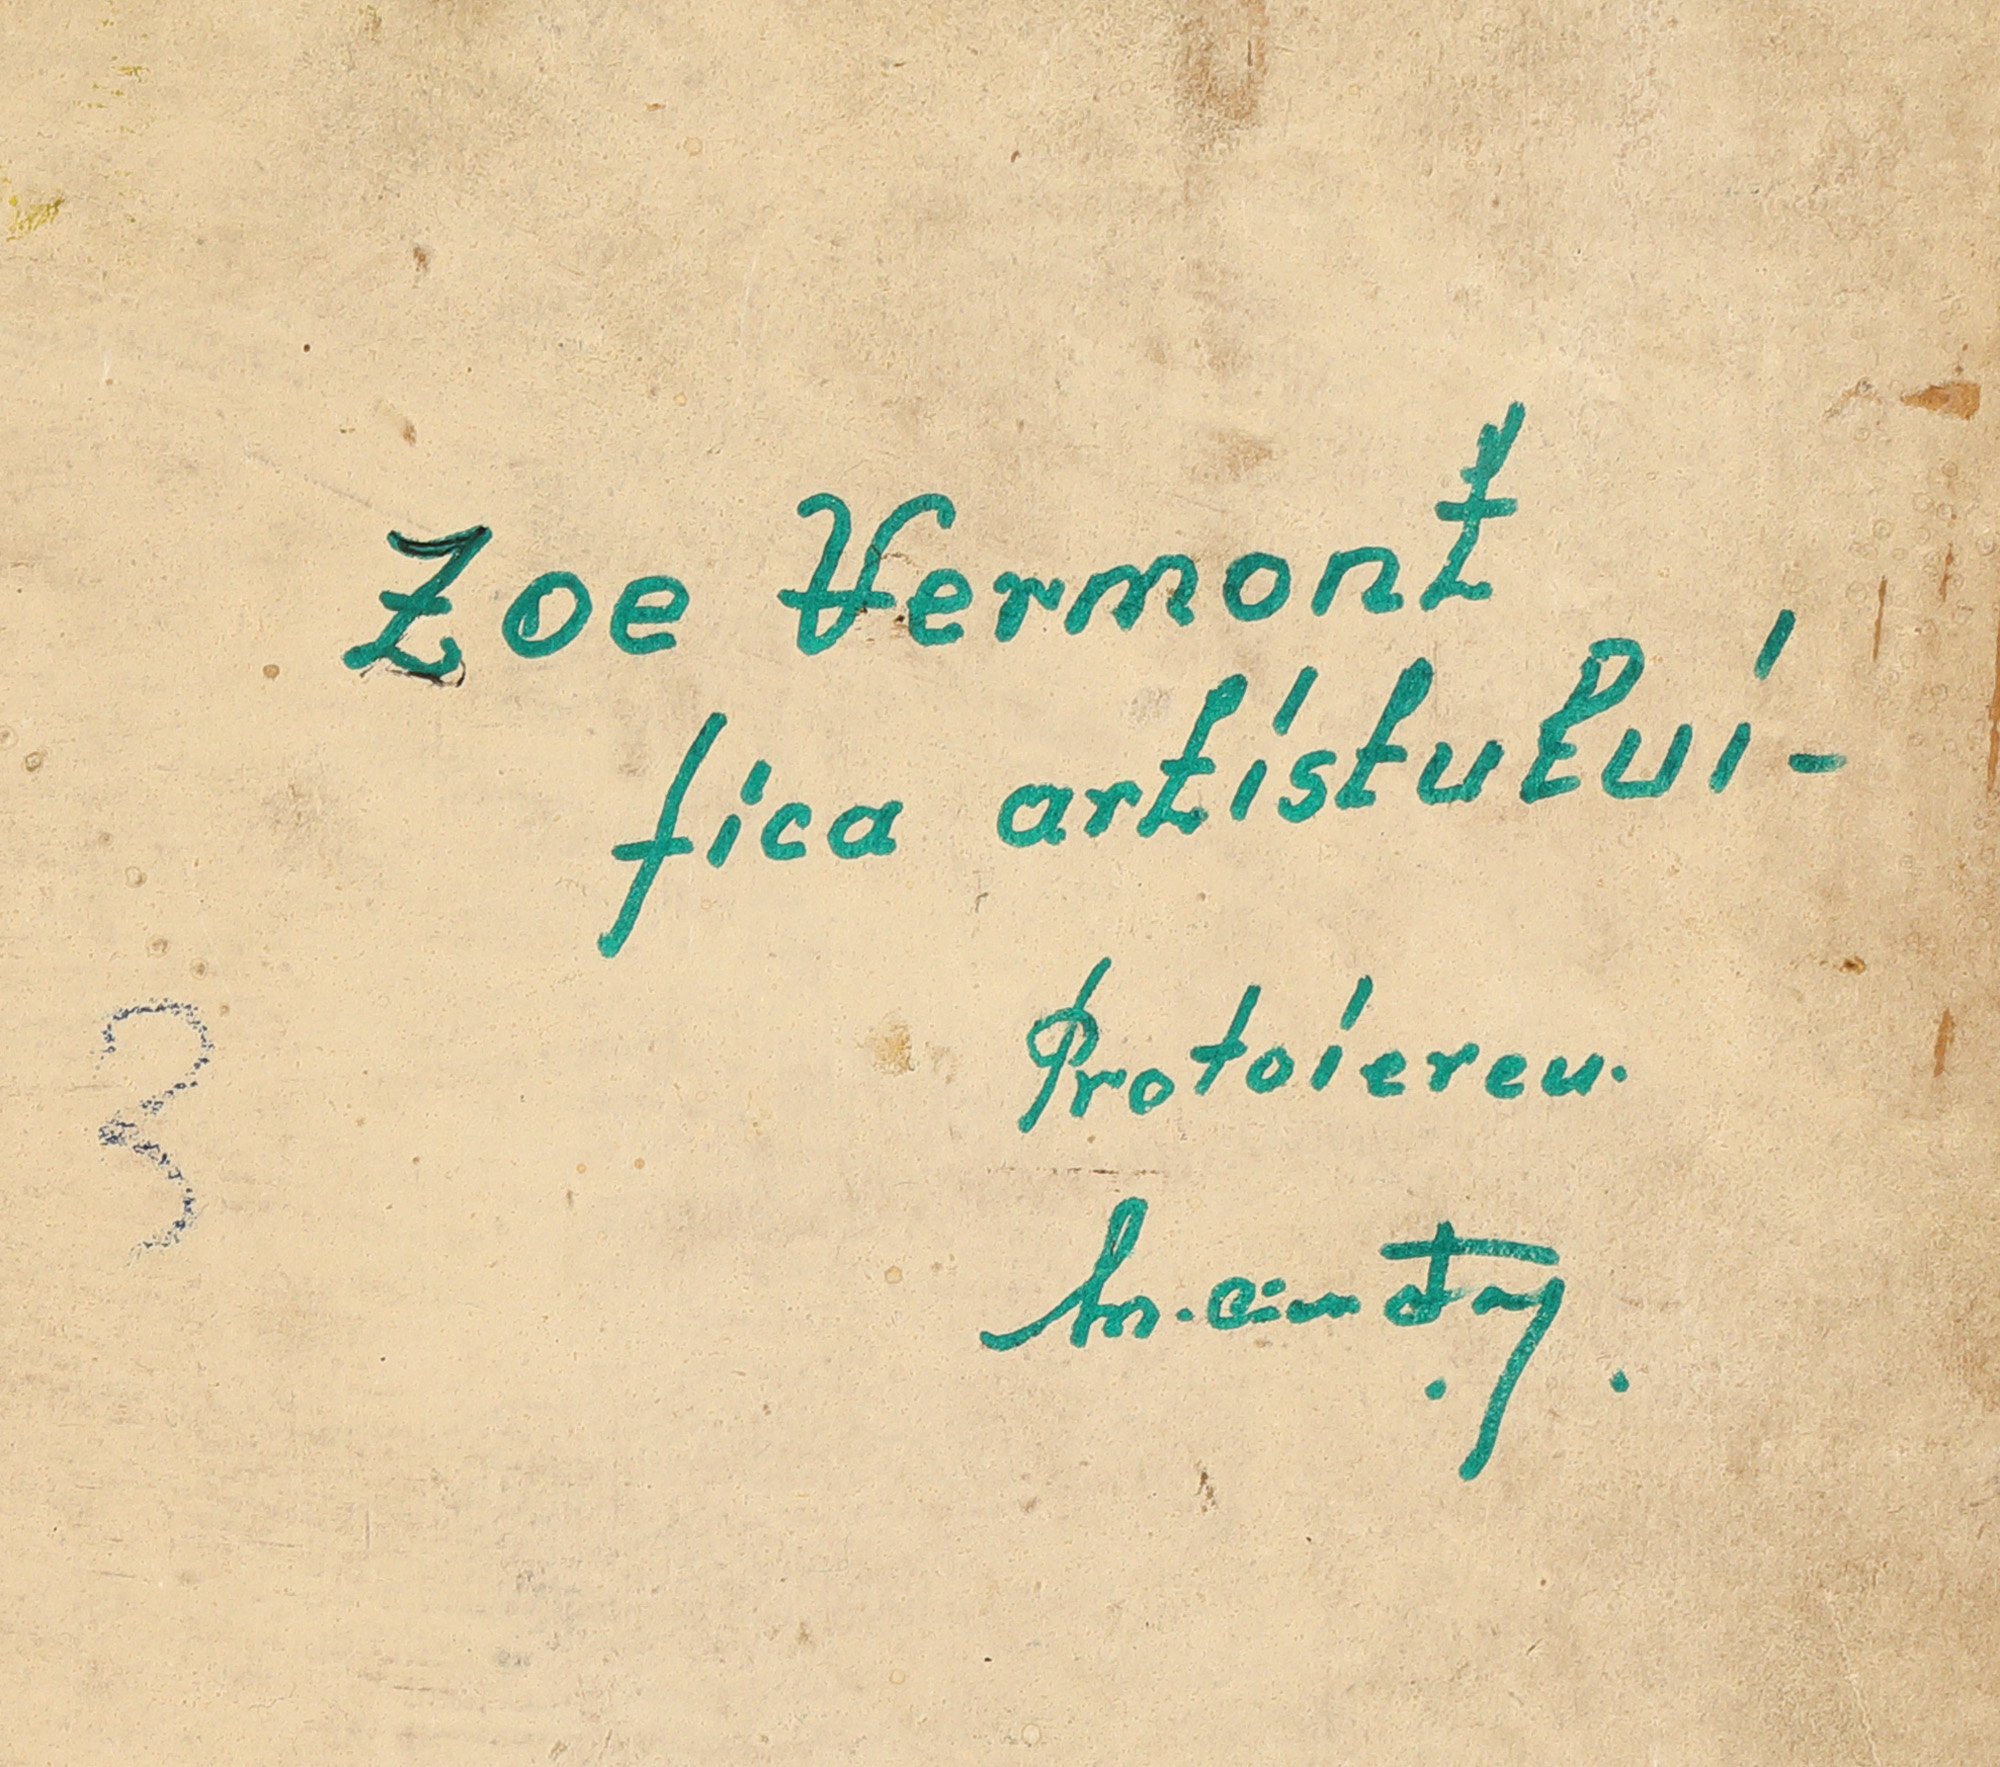 Zoe Vermont
fica artistului-
Protoiereu.
3